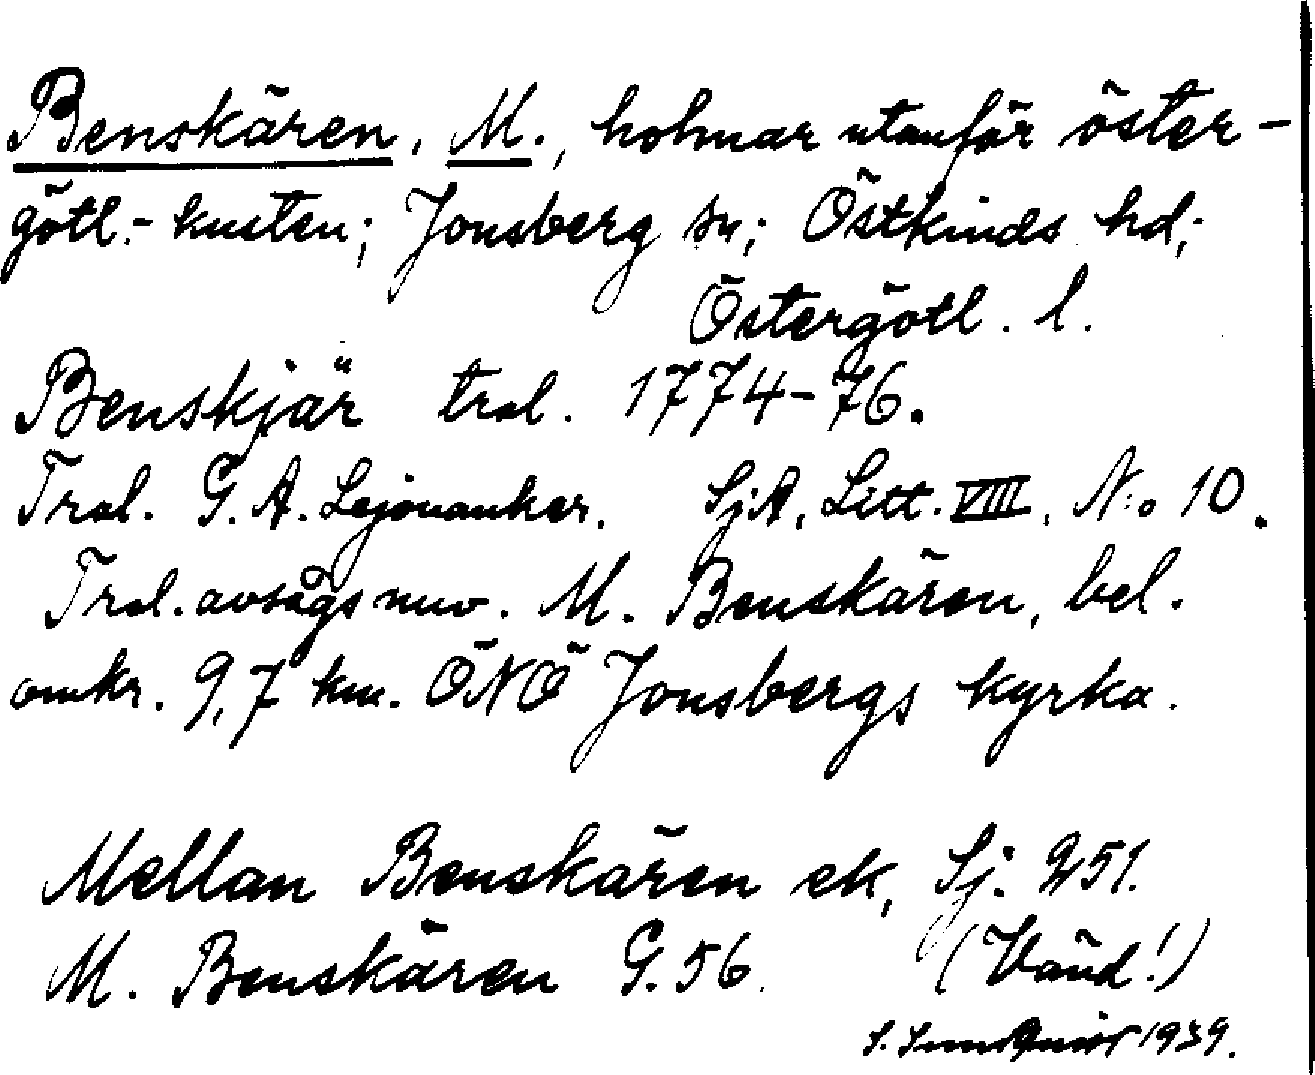 Benskären, M., holmar utanför öster-
götl.-kusten; Jonsberg sn; Östkinds hd;
Östergötl. l.
Benskjär trol. 1774-76.
Trol. G. A. Lejonanker. SjA, Litt. VIII, N:o 10.
Trol. avsågs nuv. M. Benskären, bel.
omkr. 9,7 km. ÖNÖ Jonsbergs kyrka.
Mellan Benskären ek, Sj. 251.
M. Benskären G. 56. (Vänd!)
S. 1939.